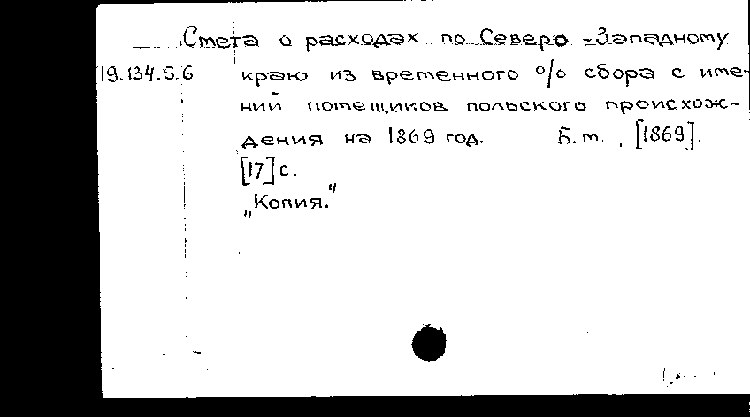 Смета о расходах по Северо-Западному
19.134.5.6 краю из временного % сбора с име-
ний помещиков польского происхож-
дения на 1869 год. Б.м., [1869].
[17] с.
„Копия."